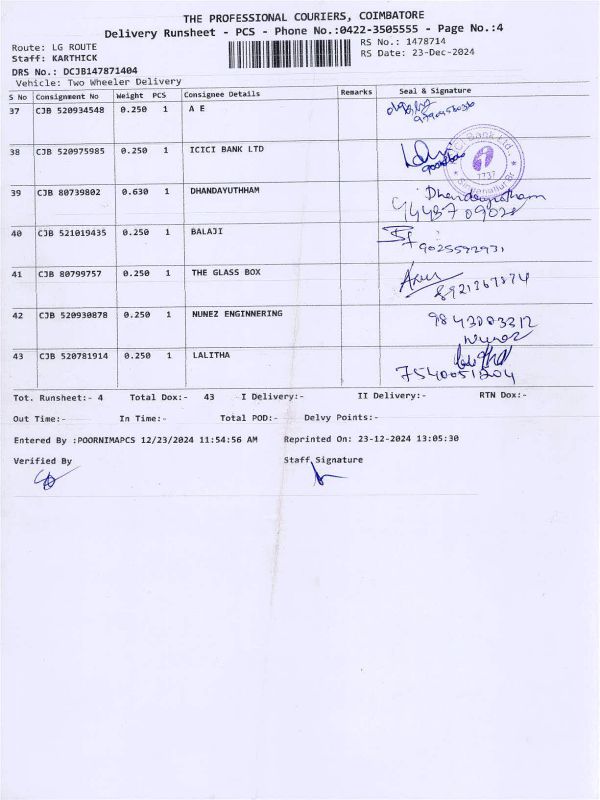 THE PROFESSIONAL COURIERS, COIMBATORE
Delivery Runsheet - PCS - Phone No.:0422-3505555 - Page No.:4
Route: LG ROUTE
RS No.: 1478714
Staff: KARTHICK
RS Date: 23-Dec-2024
DRS No.: DCJB147871404
Vehicle: Two Wheeler Delivery
S No Consignment No Weight PCS Consignee Details Remarks Seal & Signature
37 CJB 520934548 0.250 1 A E
38 CJB 520975985 0.250 1 ICICI BANK LTD
ICICI Bank Ltd.
7737
39 CJB 80739802 0.630 1 DHANDAYUTHHAM Dhandayutham
40 CJB 521019435 0.250 1 BALAJI
9025592931
41 CJB 80799757 0.250 1 THE GLASS BOX Arun
42 CJB 520930878 0.250 1 NUNEZ ENGINNERING
9843083312
Nunez
43 CJB 520781914 0.250 1 LALITHA Lalitha
Tot. Runsheet:- 4 Total Dox:- 43 I Delivery:- II Delivery:- RTN Dox:-
Out Time:- In Time:- Total POD:- Delvy Points:-
Entered By :POORNIMAPCS 12/23/2024 11:54:56 AM Reprinted On: 23-12-2024 13:05:30
Verified By Staff Signature